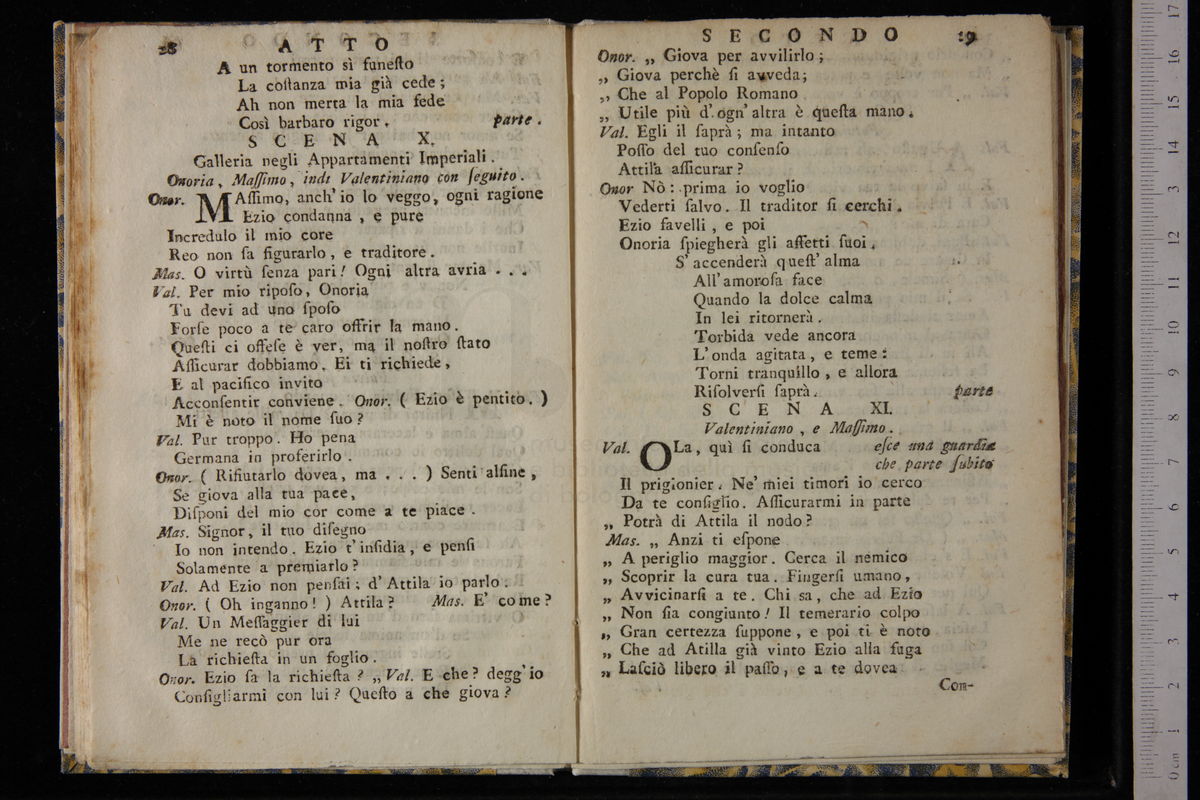 28 ATTO
A un tormento sì funeſto
La coſtanza mia già cede ;
Ah non merta la mia fede
Così barbaro rigor . parte .
SCENA X.
Galleria negli Appartamenti Imperiali .
Onoria , Maſſimo , indi Valentiniano con ſeguito .
Onor. MAſſimo, anch' io lo veggo, ogni ragione
Ezio condanna , e pure
Incredulo il mio core
Reo non ſa figurarlo , e traditore .
Mas. O virtù ſenza pari ! Ogni altra avria . . .
Val. Per mio ripoſo, Onoria
Tu devi ad uno ſpoſo
Forſe poco a te caro offrir la mano .
Queſti ci offeſe è ver, ma il noſtro ſtato
Aſſicurar dobbiamo. Ei ti richiede ,
E al pacifico invito
Acconſentir conviene . Onor. ( Ezio è pentito. )
Mi è noto il nome ſuo ?
Val. Pur troppo . Ho pena
Germana in proferirlo .
Onor. ( Rifiutarlo dovea, ma . . . ) Senti alfine ,
Se giova alla tua pace,
Diſponi del mio cor come a te piace .
Mas. Signor, il tuo diſegno
Io non intendo . Ezio t' inſidia , e penſi
Solamente a premiarlo ?
Val. Ad Ezio non penſai ; d' Attila io parlo .
Onor. ( Oh inganno ! ) Attila ? Mas. E' come ?
Val. Un Meſſaggier di lui
Me ne recò pur ora
La richieſta in un foglio .
Onor. Ezio fa la richieſta ? „ Val. E che ? degg' io
Conſigliarmi con lui ? Queſto a che giova ?
SECONDO 29
Onor. „ Giova per avvilirlo ;
„ Giova perchè ſi avveda;
„ Che al Popolo Romano
„ Utile più d' ogn' altra è queſta mano .
Val. Egli il ſaprà ; ma intanto
Poſſo del tuo conſenſo
Attila aſſicurar ?
Onor Nò : prima io voglio
Vederti ſalvo . Il traditor ſi cerchi .
Ezio favelli , e poi
Onoria ſpiegherà gli affetti ſuoi .
S' accenderà queſt' alma
All' amoroſa face
Quando la dolce calma
In lei ritornerà .
Torbida vede ancora
L' onda agitata , e teme :
Torni tranquillo , e allora
Riſolverſi ſaprà . parte
SCENA XI.
Valentiniano , e Maſſimo .
Val. OLa, quì ſi conduca eſce una guardia
che parte ſubito
Il prigionier . Ne' miei timori io cerco
Da te conſiglio. Aſſicurarmi in parte
„ Potrà di Attila il nodo ?
Mas. „ Anzi ti eſpone
„ A periglio maggior. Cerca il nemico
„ Scoprir la cura tua. Fingerſi umano,
„ Avvicinarſi a te . Chi sa, che ad Ezio
„ Non ſia congiunto ! Il temerario colpo
„ Gran certezza ſuppone , e poi ti è noto
„ Che ad Atilla già vinto Ezio alla fuga
„ Laſciò libero il paſſo, e a te dovea
Con-